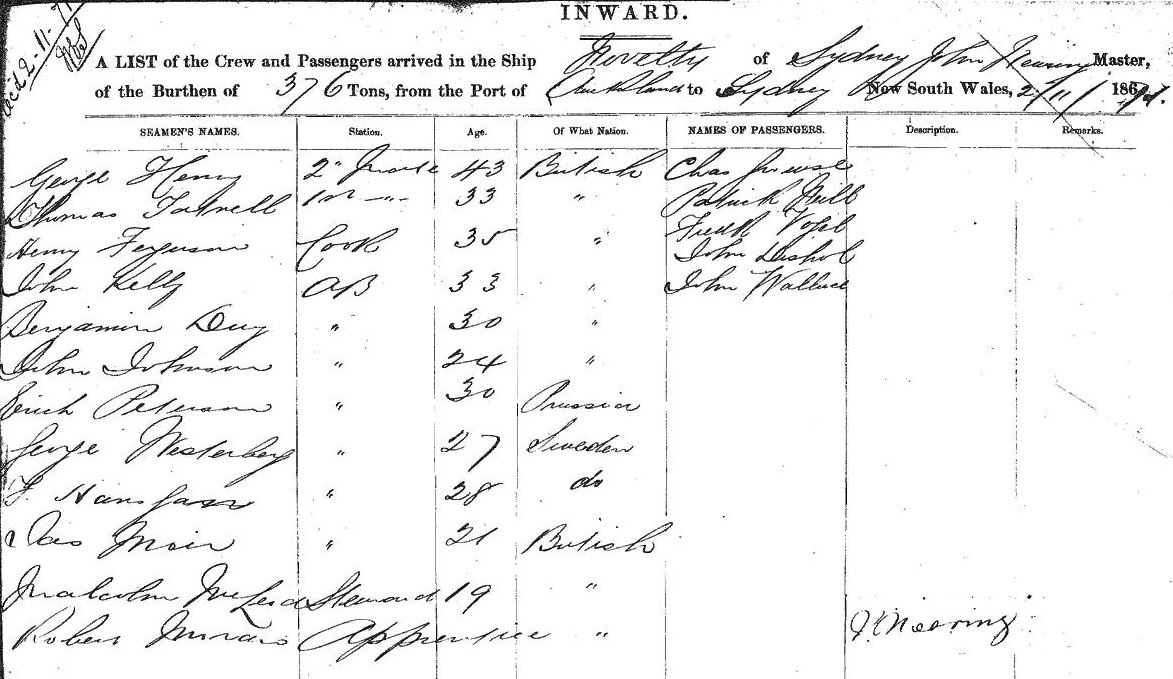 INWARD.
A LIST of the Crew and Passengers arrived in the Ship Novelty of Sydney John Nearing Master,
of the Burthen of 376 Tons, from the Port of Auckland to Sydney New South Wales, 2/11/ 187
SEAMEN'S NAMES. Station. Age. Of What Nation. NAMES OF PASSENGERS. Description. Remarks.
George Henry 2" Mate 43 British Chas
Thomas 1st -"- 33 " Patrick
Henry Ferguson Cook 35 " Fredk Vogel
John
John Kelly AB 33 " John Wallace
Benjamin " 30 "
John Johnson " 24 "
Erich Peterson " 30 Prussia
George Westerberg " 27 Sweden
F. " 28 do
Jas Moir " 21 British
Malcolm McLeod Steward 19 "
Robert Apprentice "
J Nearing